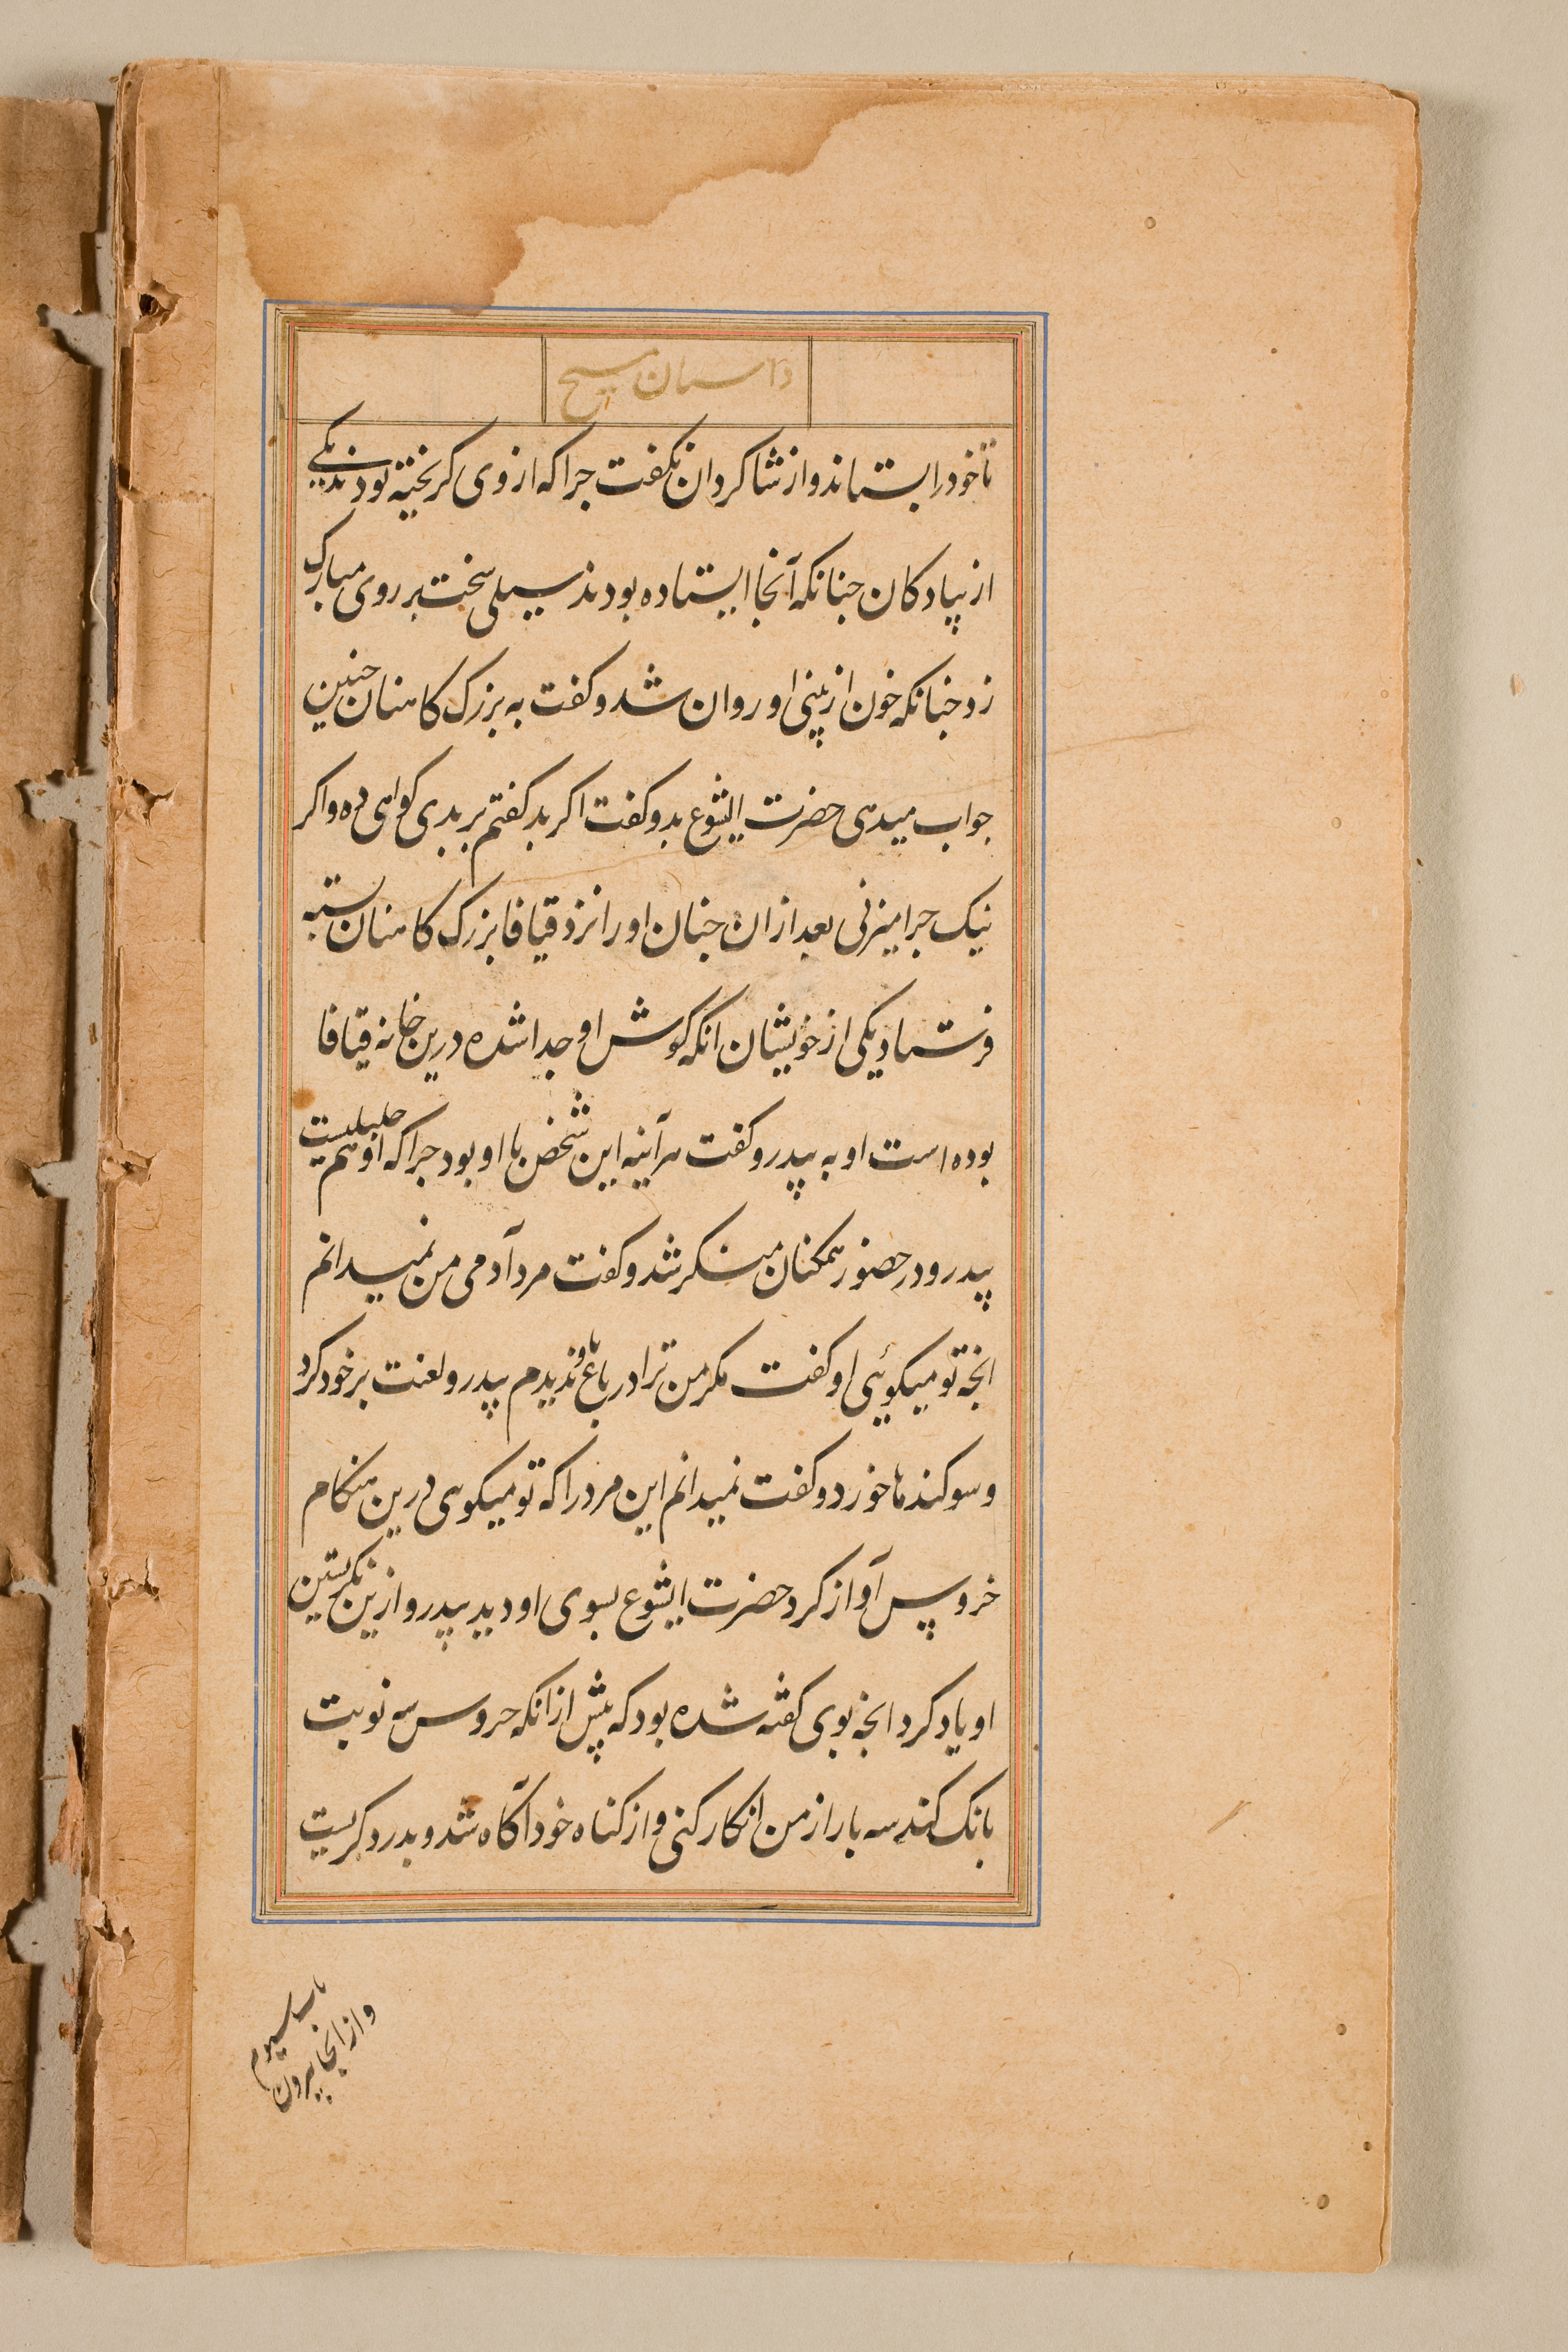 داستان مسیح
تا خود را بستاند و از شاکردان نکفت جرا که از وی کریخته بودند یکی
از پیادکان جنانکه آنجا ایستاده بودند سیلی سخت بر روی مبارک
زد جنانکه خون از بینی او روان شد و کفت به بزرک کاهنان جنین
جواب میدهی حضرت ایشوع بدو کفت اکر بد کفتم بر بدی کواهی ده و اکر
نیک جرا میزنی بعد از ان جنان او را نزد قیافا بزرک کاهنان بسته
فرستاد یکی از خویشان انکه کوش او جدا شده درین خانه قیافا
بوده است او به پیدرو کفت هرآینه این شخص با او بود جرا که او هم جلیلیست
پیدرو در حضور همکنان منکر شد و کفت مرد آدمی من نمیدانم
انجه تو میکوئی او کفت مکر من ترا در باغ با و ندیدم پیدرو لعنت بر خود کرد
و سوکندها خورد و کفت نمیدانم این مرد را که تو میکوی درین هنکام
خروس آواز کرد حضرت ایشوع بسوی او دید پیدرو ازین نکریستن
او یاد کرد انجه بوی کفته شده بود که پیش از انکه خروس سه نوبت
بانک کند سه بار از من انکار کنی و از کناه خود آکاه شد و بدرد کریست
باب سیوم
و از انجا بیرون